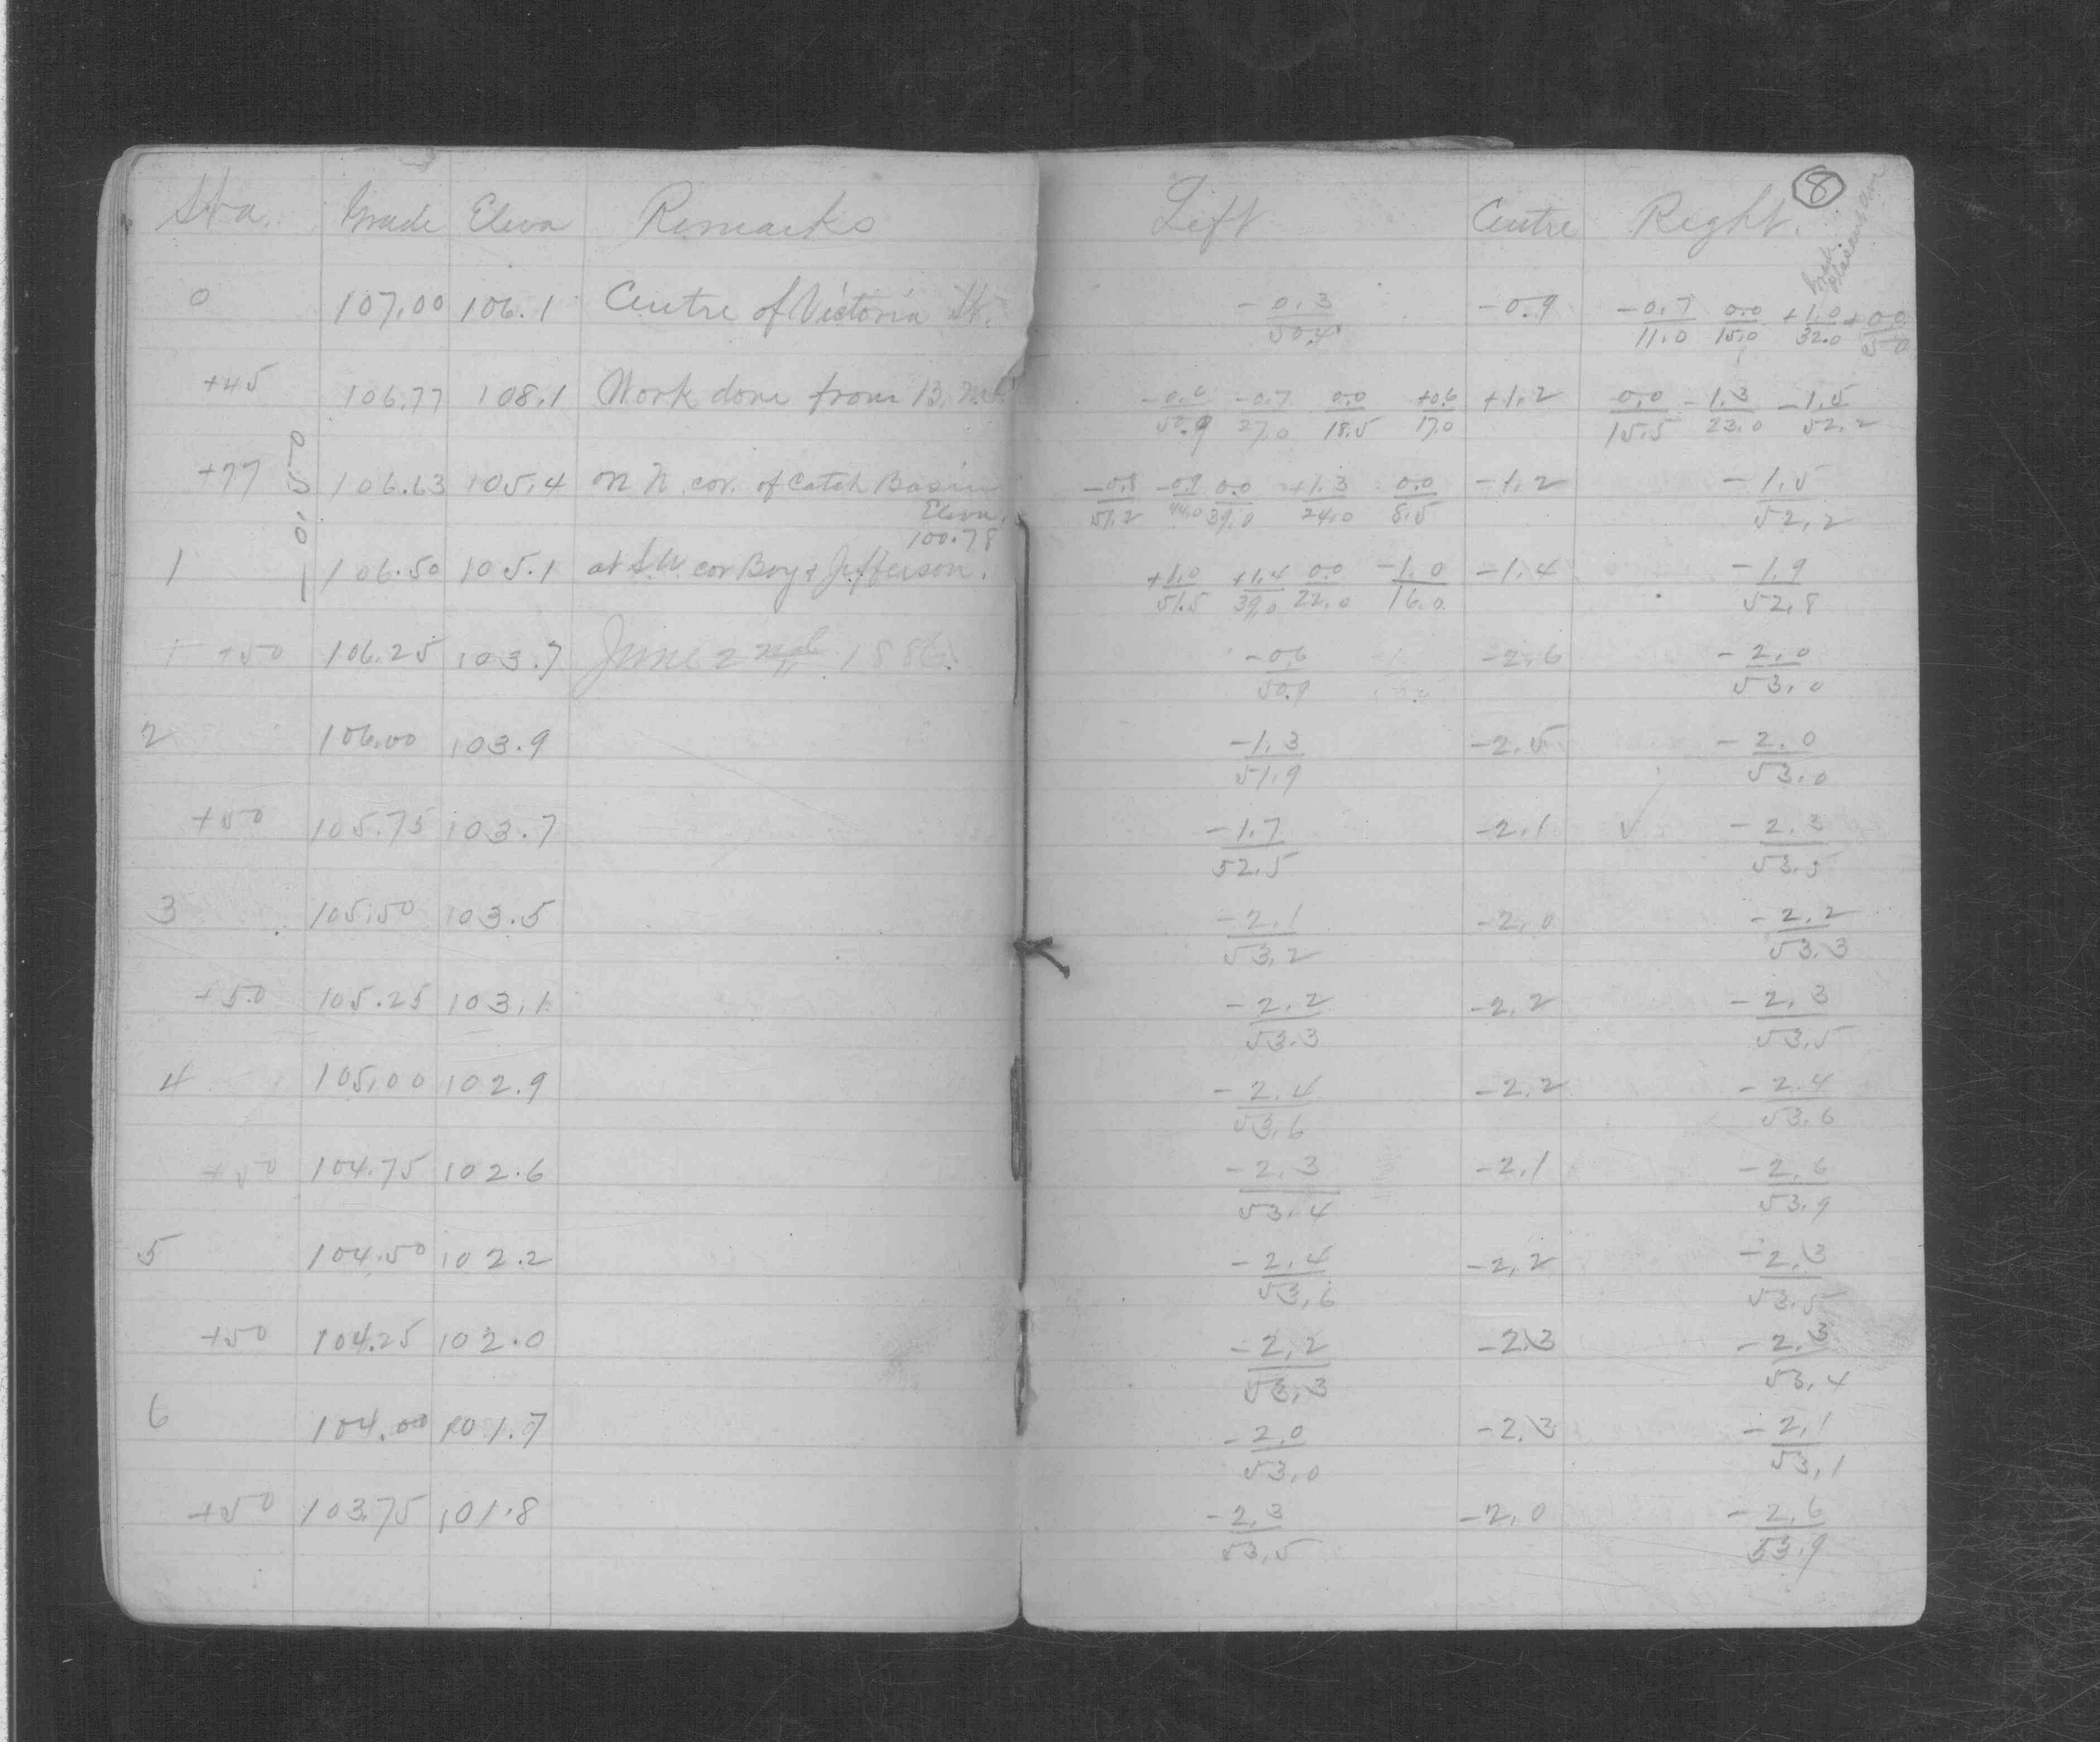 8
Sta. Grade Eleva Remarks Left Centre Right.
0 107.00 106.1 Centre of Victoria St. -0.3/50.4 -0.9 -0.7/11.0 0.0/15.0 +1.0/32.0
+45 106.77 108.1 Work done from B.M. /50.9 -0.7/27.0 0.0/18.5 +0.6/17.0 +1.2 0.0/15.5 -1.3/23.0 -1.5/52.2
+77 106.63 105.4 on N. cor. of Catch Basin -0.8/51.2 -0.9/44.0 0.0/39.0 +1.3/24.0 0.0/8.5 -1.2 -1.5/52.2
Eleva.
100.78
-0.50
1 106.50 105.1 at S.W. cor Boy & Jefferson. +1.0/51.5 +1.4/39.0 0.0/22.0 -1.0/16.0 -1.4 -1.9/52.8
1 +50 106.25 103.7 June 22nd 1886. -0.6/50.9 -2.6 -2.0/53.0
2 106.00 103.9 -1.3/51.9 -2.5 -2.0/53.0
+50 105.75 103.7 -1.7/52.5 -2.1 -2.3/53.5
3 105.50 103.5 -2.1/53.2 -2.0 -2.2/53.3
+50 105.25 103.1 -2.2/53.3 -2.2 -2.3/53.5
4 105.00 102.9 -2.4/53.6 -2.2 -2.4/53.6
+50 104.75 102.6 -2.3/53.4 -2.1 -2.6/53.9
5 104.50 102.2 -2.4/53.6 -2.2 -2.3/53.5
+50 104.25 102.0 -2.2/53.3 -2.3 -2.3/53.4
6 104.00 101.7 -2.0/53.0 -2.3 -2.1/53.1
+50 103.75 101.8 -2.3/53.5 -2.0 -2.6/53.9